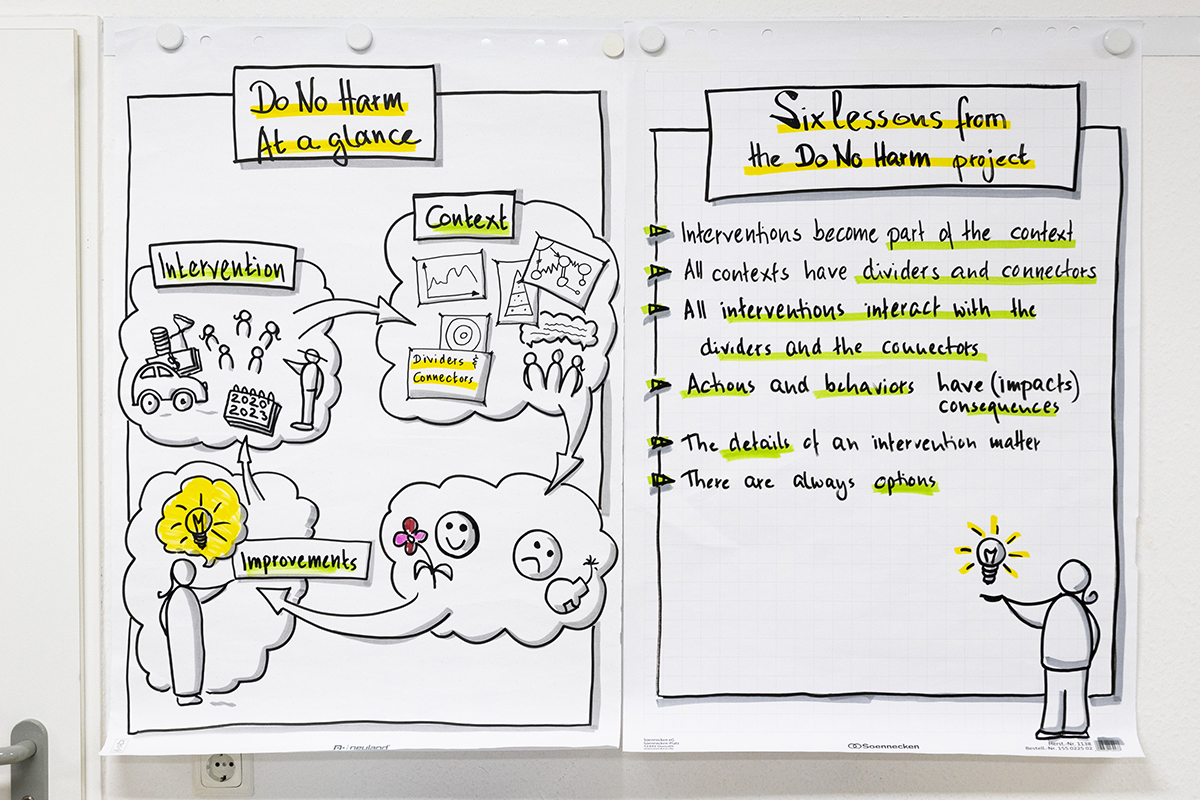 Do No Harm
At a glance
Context
Intervention
Dividers &
Connectors
2020
2023
Improvements
neuland
Six lessons from
the Do No Harm project
Interventions become part of the context
All contexts have dividers and connectors
All interventions interact with the
dividers and the connectors
Actions and behaviors have (impacts)
consequences
The details of an intervention matter
There are always options
Soennecken
Bestell.-Nr. 155.0225.02